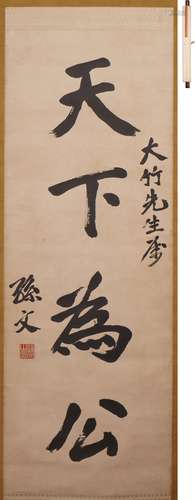 大竹先生屬
天下為公
孫文